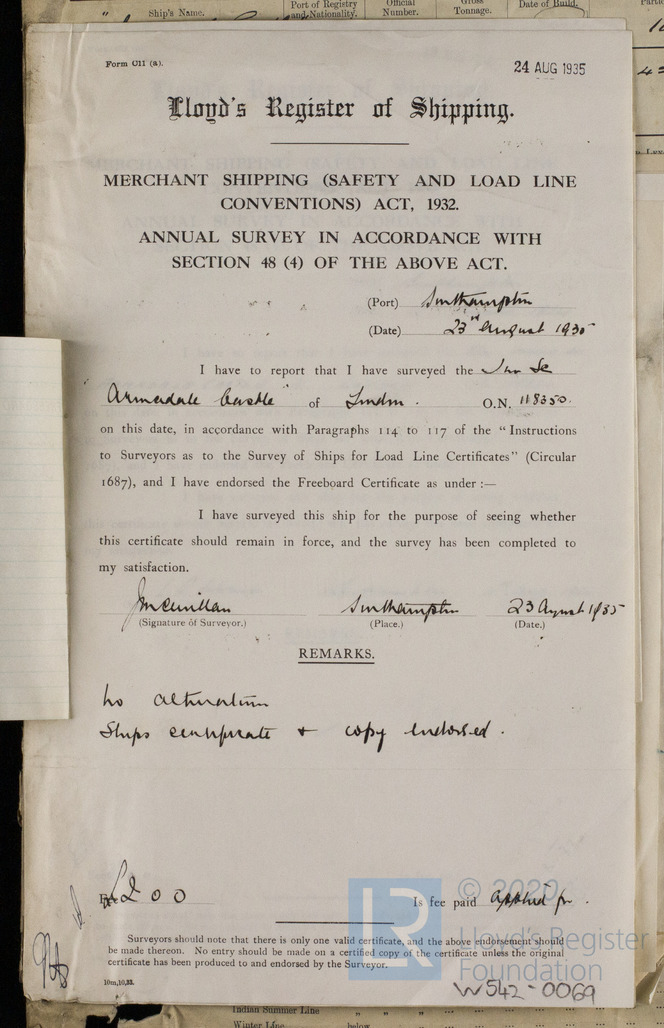 Ship's Name. Port of Registry and Nationality. Official Number. Gross Tonnage. Date of Build.
Form C11 (a).
24 AUG 1935
Lloyd's Register of Shipping.
MERCHANT SHIPPING (SAFETY AND LOAD LINE
CONVENTIONS) ACT, 1932.
ANNUAL SURVEY IN ACCORDANCE WITH
SECTION 48 (4) OF THE ABOVE ACT.
(Port) Southampton
(Date) 23rd August 1935
I have to report that I have surveyed the
Armadale Castle" of London. O.N. 118350.
on this date, in accordance with Paragraphs 114 to 117 of the "Instructions
to Surveyors as to the Survey of Ships for Load Line Certificates" (Circular
1687), and I have endorsed the Freeboard Certificate as under :—
I have surveyed this ship for the purpose of seeing whether
this certificate should remain in force, and the survey has been completed to
my satisfaction.
Southampton 23 August 1935
(Signature of Surveyor.) (Place.) (Date.)
REMARKS.
No alteration
Ships certificate + copy endorsed.
£2 0 0 Is fee paid applied for.
Surveyors should note that there is only one valid certificate, and the above endorsement should
be made thereon. No entry should be made on a certified copy of the certificate unless the original
certificate has been produced to and endorsed by the Surveyor.
10m,10,33.
LR
© 2020
Lloyd's Register
Foundation
W542-0069
Indian Summer Line
Winter Line below